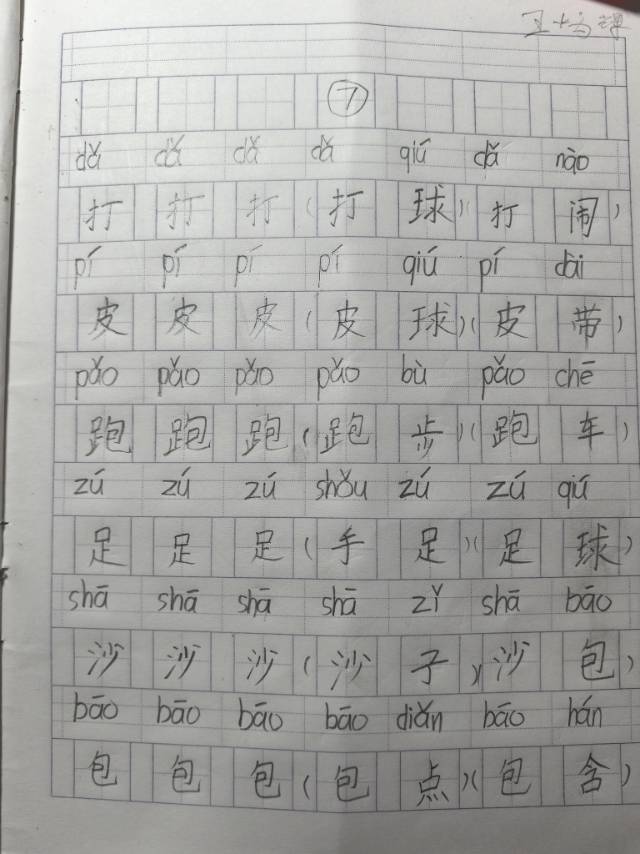 ⑦
dǎ dǎ dǎ dǎ qiú dǎ nào
打 打 打 (打 球)(打 闹)
pí pí pí pí qiú pí dài
皮 皮 皮 (皮 球)(皮 带)
pǎo pǎo pǎo pǎo bù pǎo chē
跑 跑 跑 (跑 步)(跑 车)
zú zú zú shǒu zú zú qiú
足 足 足 (手 足)(足 球)
shā shā shā shā zǐ shā bāo
沙 沙 沙 (沙 子)(沙 包)
bāo bāo bāo bāo diǎn bāo hán
包 包 包 (包 点)(包 含)